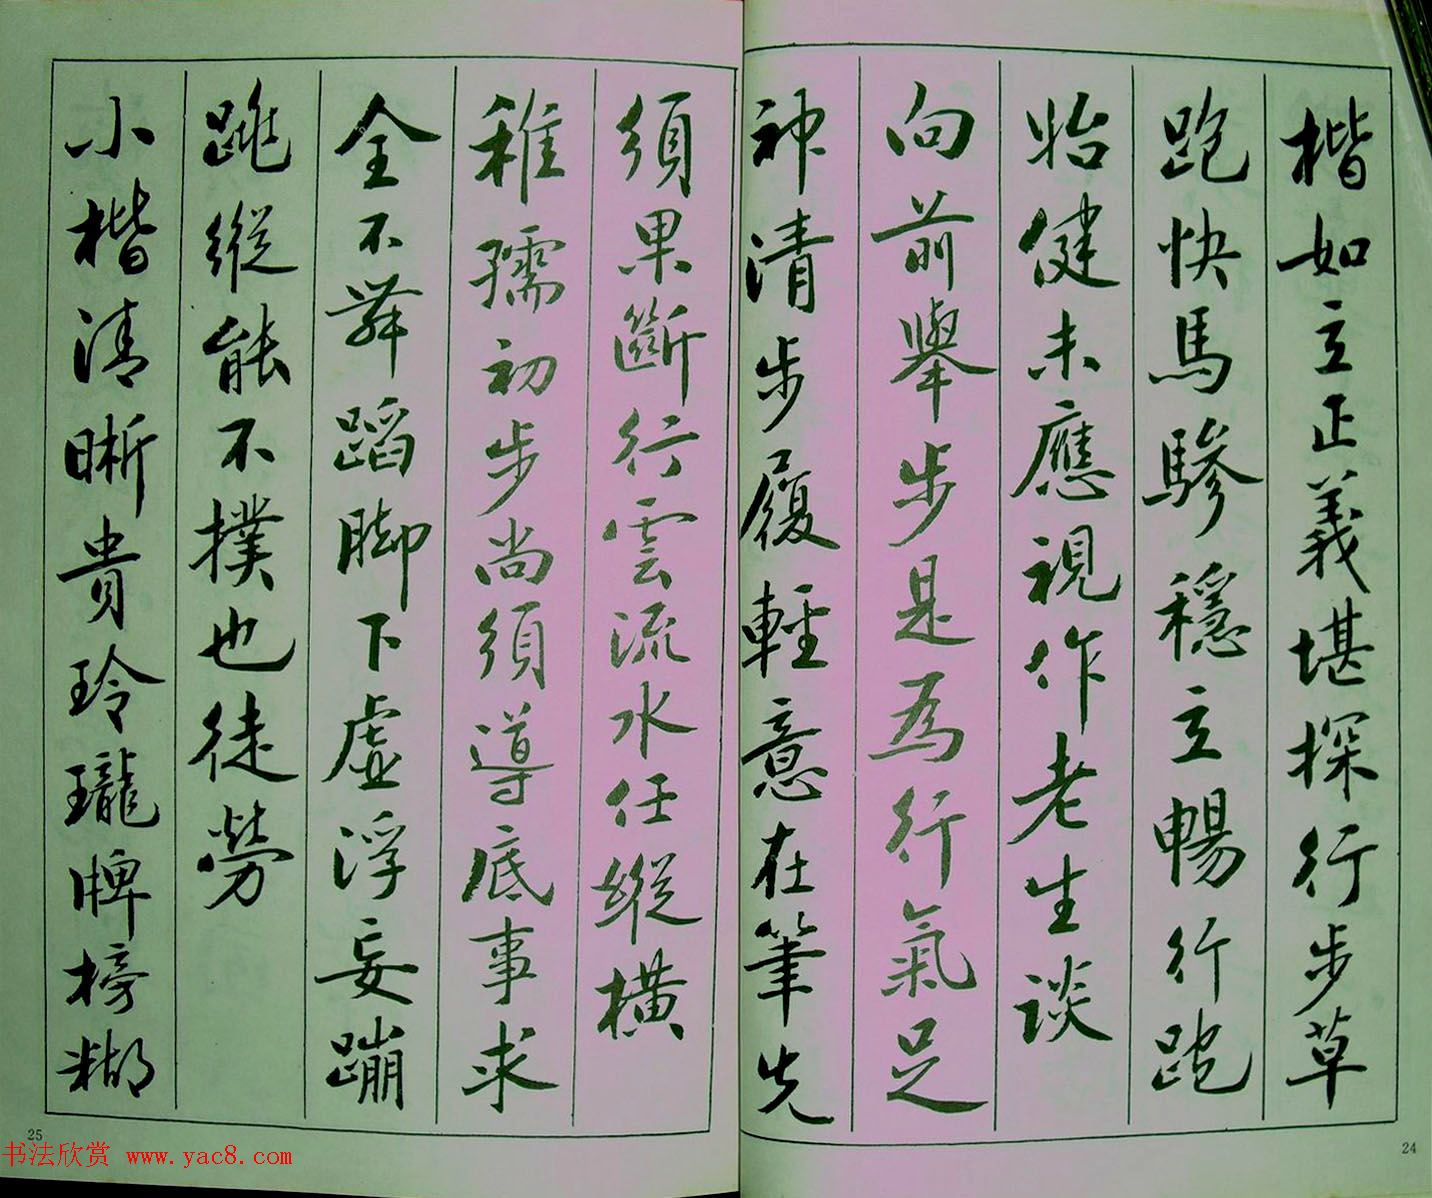 楷如立正義堪探行步草
跑快馬驂穩立暢行跑
始健未應視作老生談
向前舉步是為行氣足
神清步履輕意在筆先
須果斷行雲流水任縱橫
稚孺初步尚須導底事求
全不舞蹈脚下虛浮妄蹦
跳縱能不撲也徒勞
小楷清晰貴玲瓏牌榜糊
25
24
书法欣赏 www.yac8.com